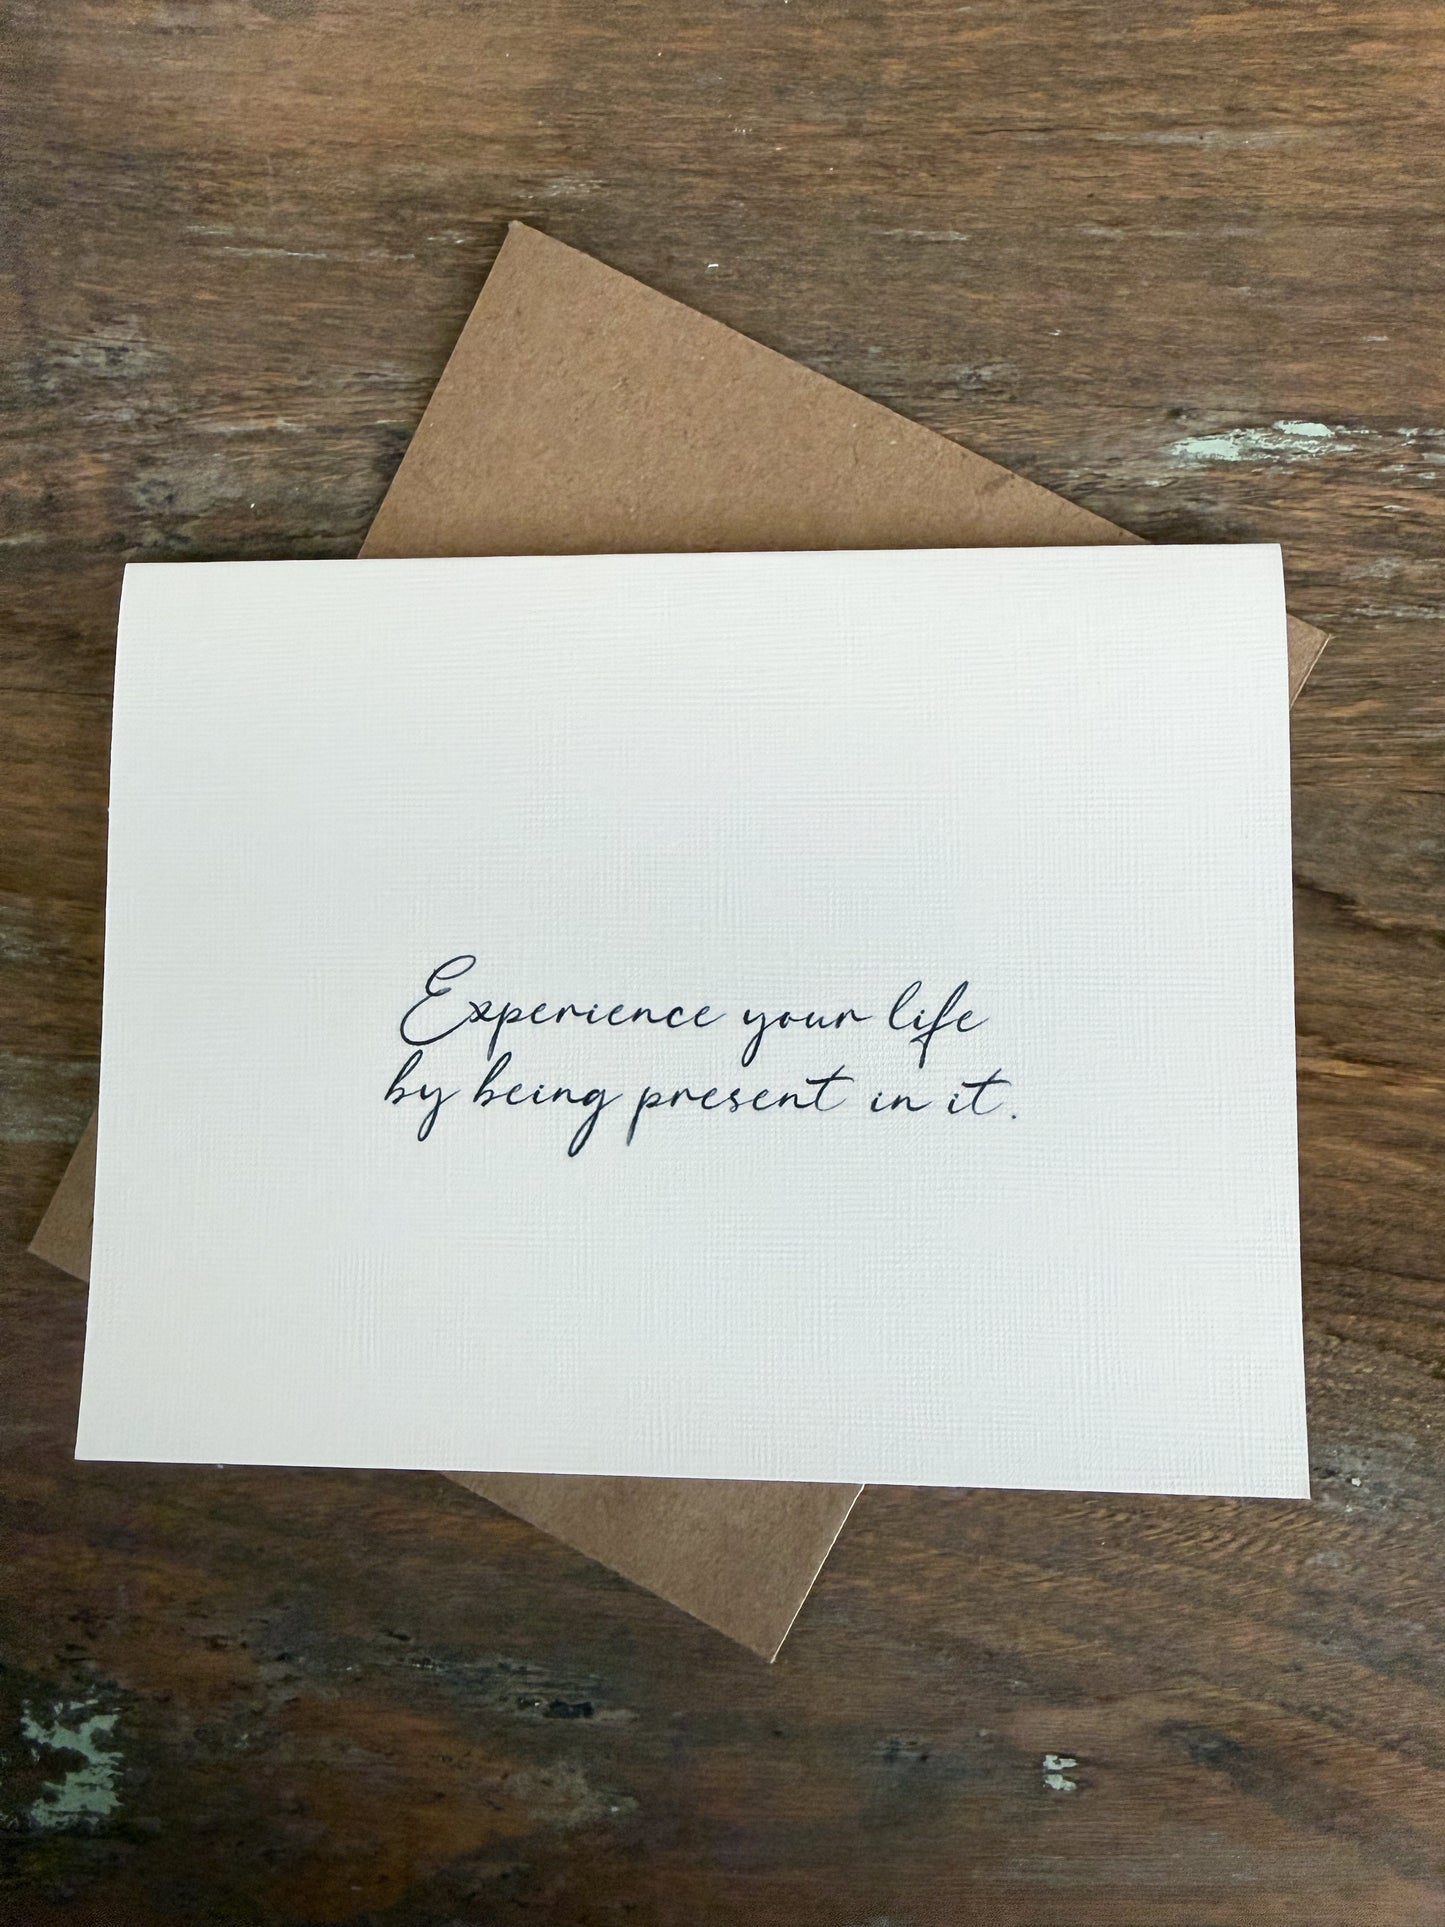 Experience your life
by being present in it.